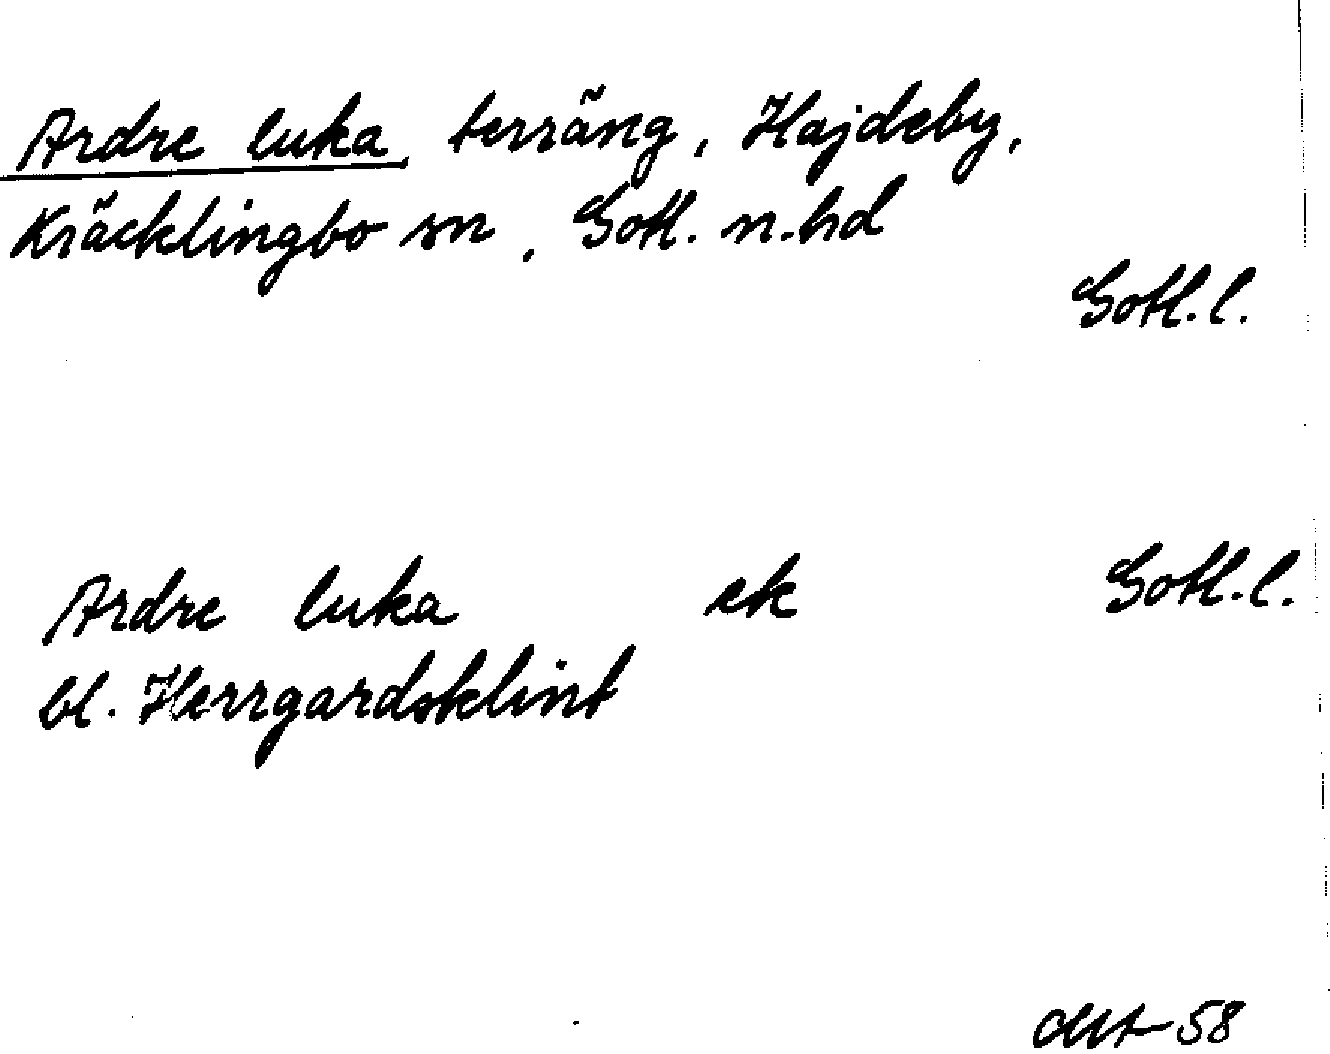 Ardre luka, terräng, Hajdeby,
Kräcklingbo sn, Gotl. n.hd
Gotl.l.
Ardre luka ek Gotl.l.
bl. Herrgardsklint
58